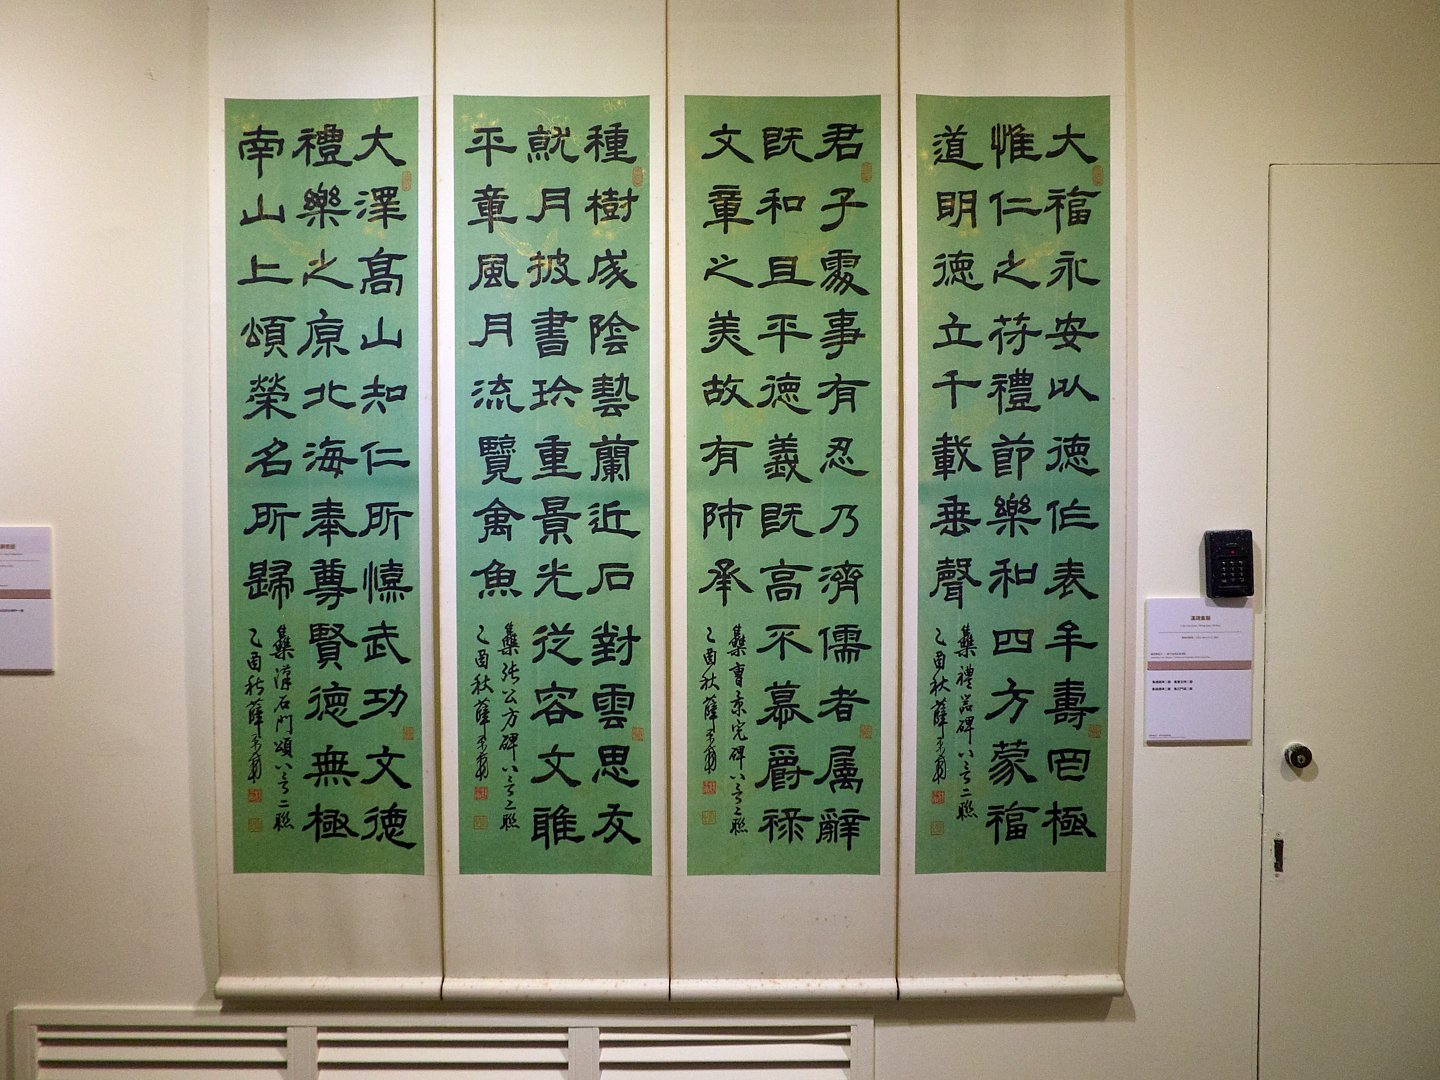 大福永安以德作表年壽罔極
惟仁之符禮節樂和四方蒙福
道明德立千載垂聲
集禮器碑八言二聯
乙酉秋薛平南
君子處事有忍乃濟儒者屬辭
既和且平德義既高不慕爵祿
文章之美故有師承
集曹景完碑八言二聯
乙酉秋薛平南
種樹成陰藝蘭近石對雲思友
就月披書珍重景光從容文雅
平章風月流覽禽魚
集張公方碑八言二聯
乙酉秋薛平南
大澤高山知仁所憘武功文德
禮樂之原北海奉尊賢德無極
南山上頌榮名所歸
集漢石門頌八言二聯
乙酉秋薛平南
漢碑集聯